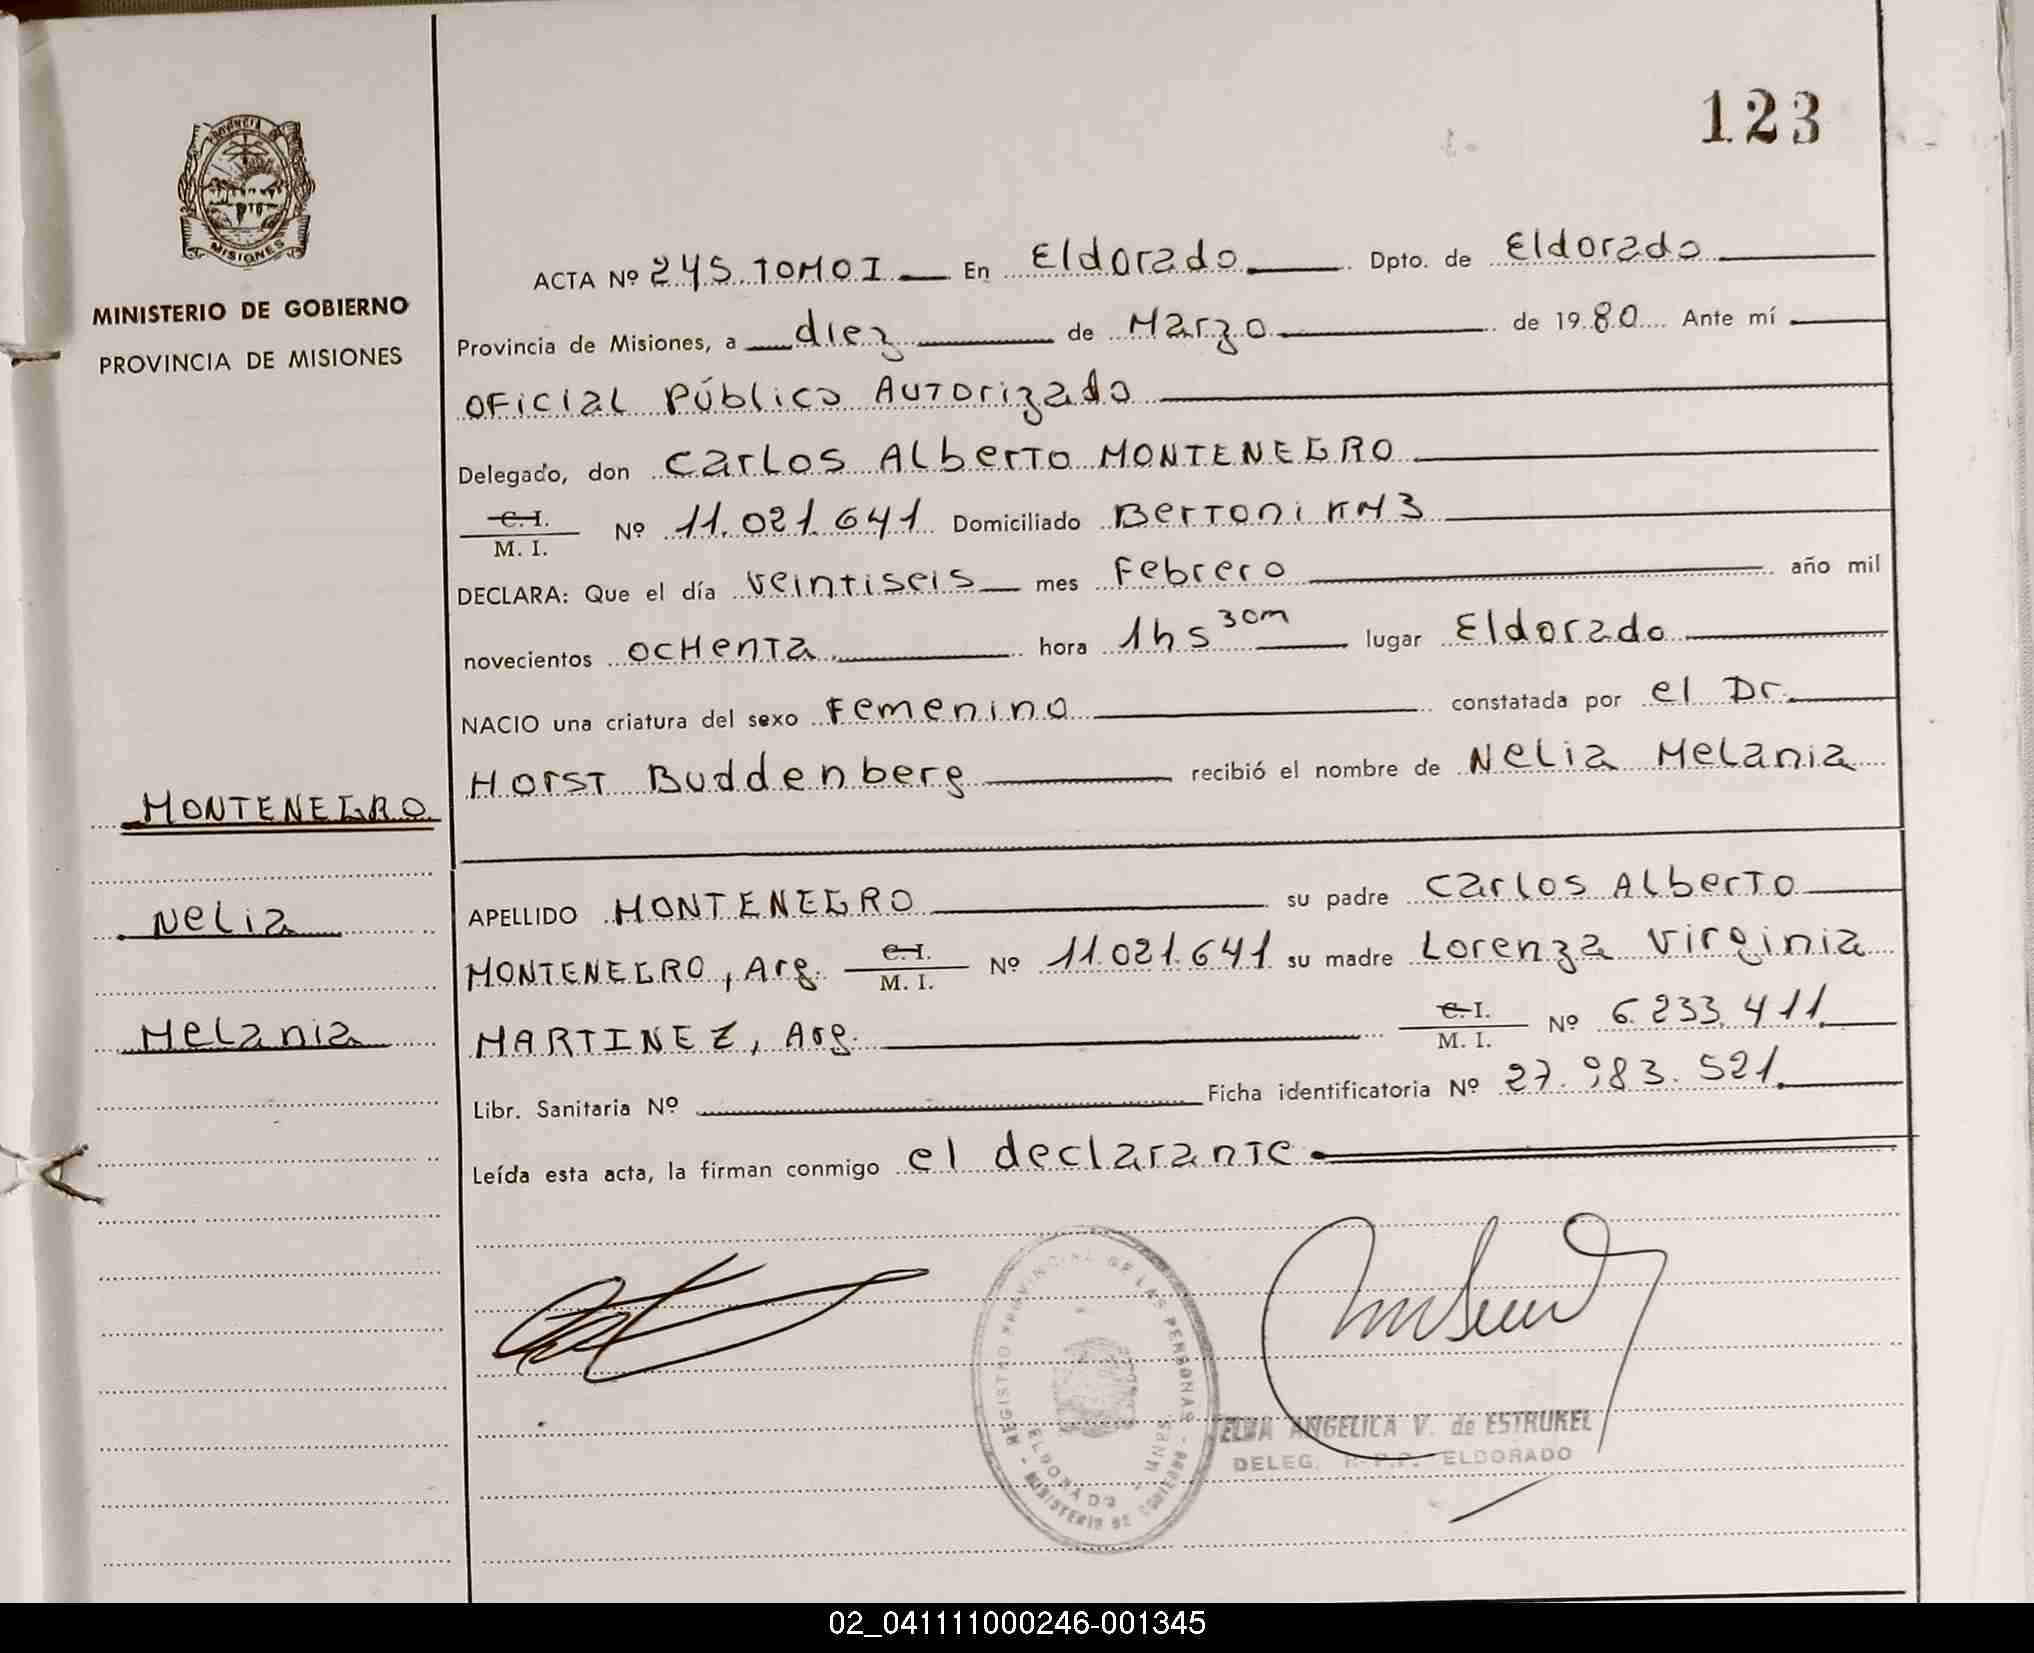 123
PROVINCIA DE
MISIONES
MINISTERIO DE GOBIERNO
PROVINCIA DE MISIONES
ACTA Nº 245 TOMO I En Eldorado Dpto. de Eldorado
Provincia de Misiones, a diez de Marzo de 1980 Ante mí
OFicial Público Autorizado
Delegado, don Carlos Alberto MONTENEGRO
C. I.
M. I. Nº 11.021.641 Domiciliado Bertoni KM 3
DECLARA: Que el día veintiseis mes Febrero año mil
novecientos ochenta hora 1hs 30m lugar Eldorado
NACIO una criatura del sexo Femenino constatada por el Dr.
Horst Buddenberg recibió el nombre de Nelia Melania
MONTENEGRO
Nelia
Melania
APELLIDO MONTENEGRO su padre Carlos Alberto
MONTENEGRO, Arg. C. I.
M. I. Nº 11.021.641 su madre Lorenza Virginia
MARTINEZ, Arg. C. I.
M. I. Nº 6.233.411
Libr. Sanitaria Nº Ficha identificatoria Nº 27.983.521
Leída esta acta, la firman conmigo el declarante
REGISTRO PROVINCIAL DE LAS PERSONAS - MINISTERIO DE GOBIERNO
ELDORADO
ANGELICA V. de ESTRUKEL
DELEG. R. P. P. ELDORADO
02_041111000246-001345